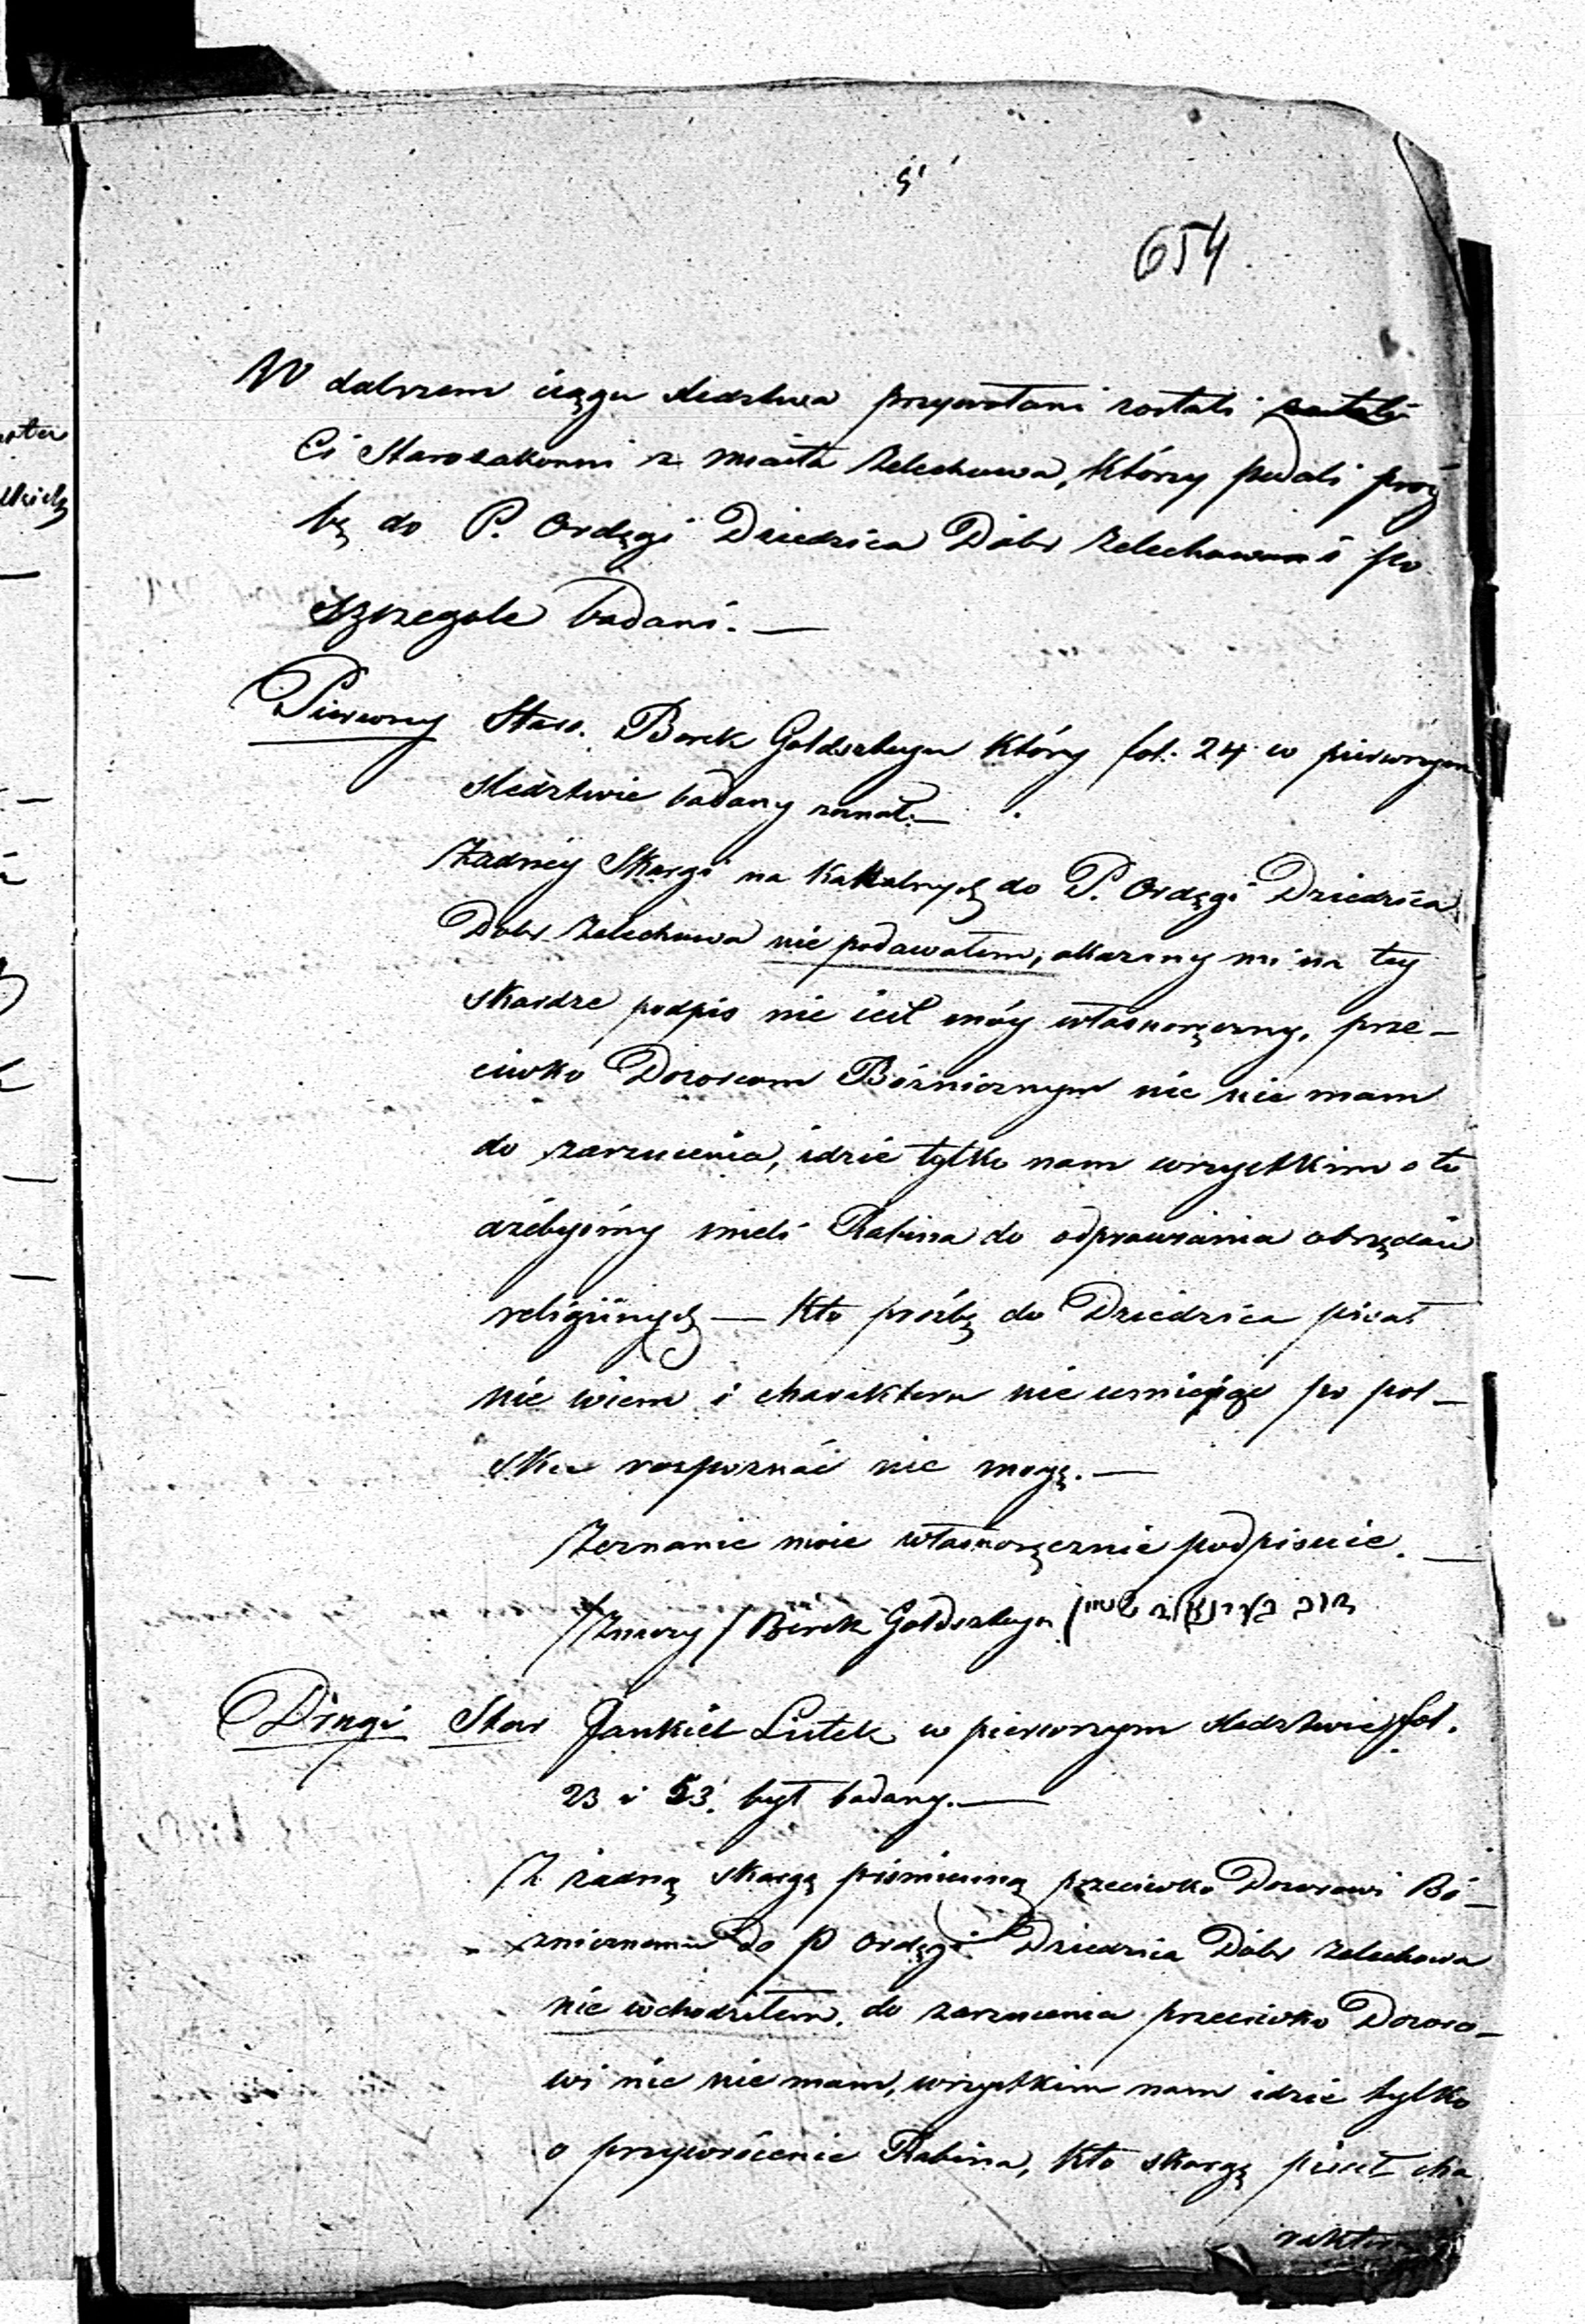 5
654
W dalszem ciągu sledztwa przywołani zostali
Ci Starozakonni z miasta Zelechowa, którzy podali proź
bę do P. Ordęgi Dziedzica Dóbr Zelechowa i po
szczegole badani. —
Pierwszy Staro. Berek Goldszlager który fol. 24 w pierwszym
sledztwie badany zeznał. —
Zadnéy Skargi na Kahalnych do P. Ordęgi Dziedzica
Dóbr Zelechowa nie podawałem, okazany mi na tey
skardze podpis nie iest móy własnoręczny, prze-
ciwko Dozorcom Bóżnicznym nic nie mam
do zarzucenia, idzie tylko nam wszystkim o to
ażebyśmy mieli Rabina do odprawiania obrzędów
religiinych — Kto proźbę do Dziedzica pisał
nie wiem i charakteru nie umieiąc po pol-
sku rozpoznać nie mogę. —
Zeznanie moie własnoręcznie podpisuie. —
Berek Goldszlager
Drugi Star Jankiel Lutek w pierwszym sledztwie fol.
23 i 53. był badany. —
Z żadną skargą piśmienną przeciwko Dozorowi Bó-
żnicznemu do P Ordęgi Dziedzica Dóbr Zelechowa
nie wchodziłem. do zarzucenia przeciwko Dozoro-
wi nic nie mam, wszystkim nam idzie tylko
o przywrócenie Rabina, Kto skargę pisał cha
rakteru